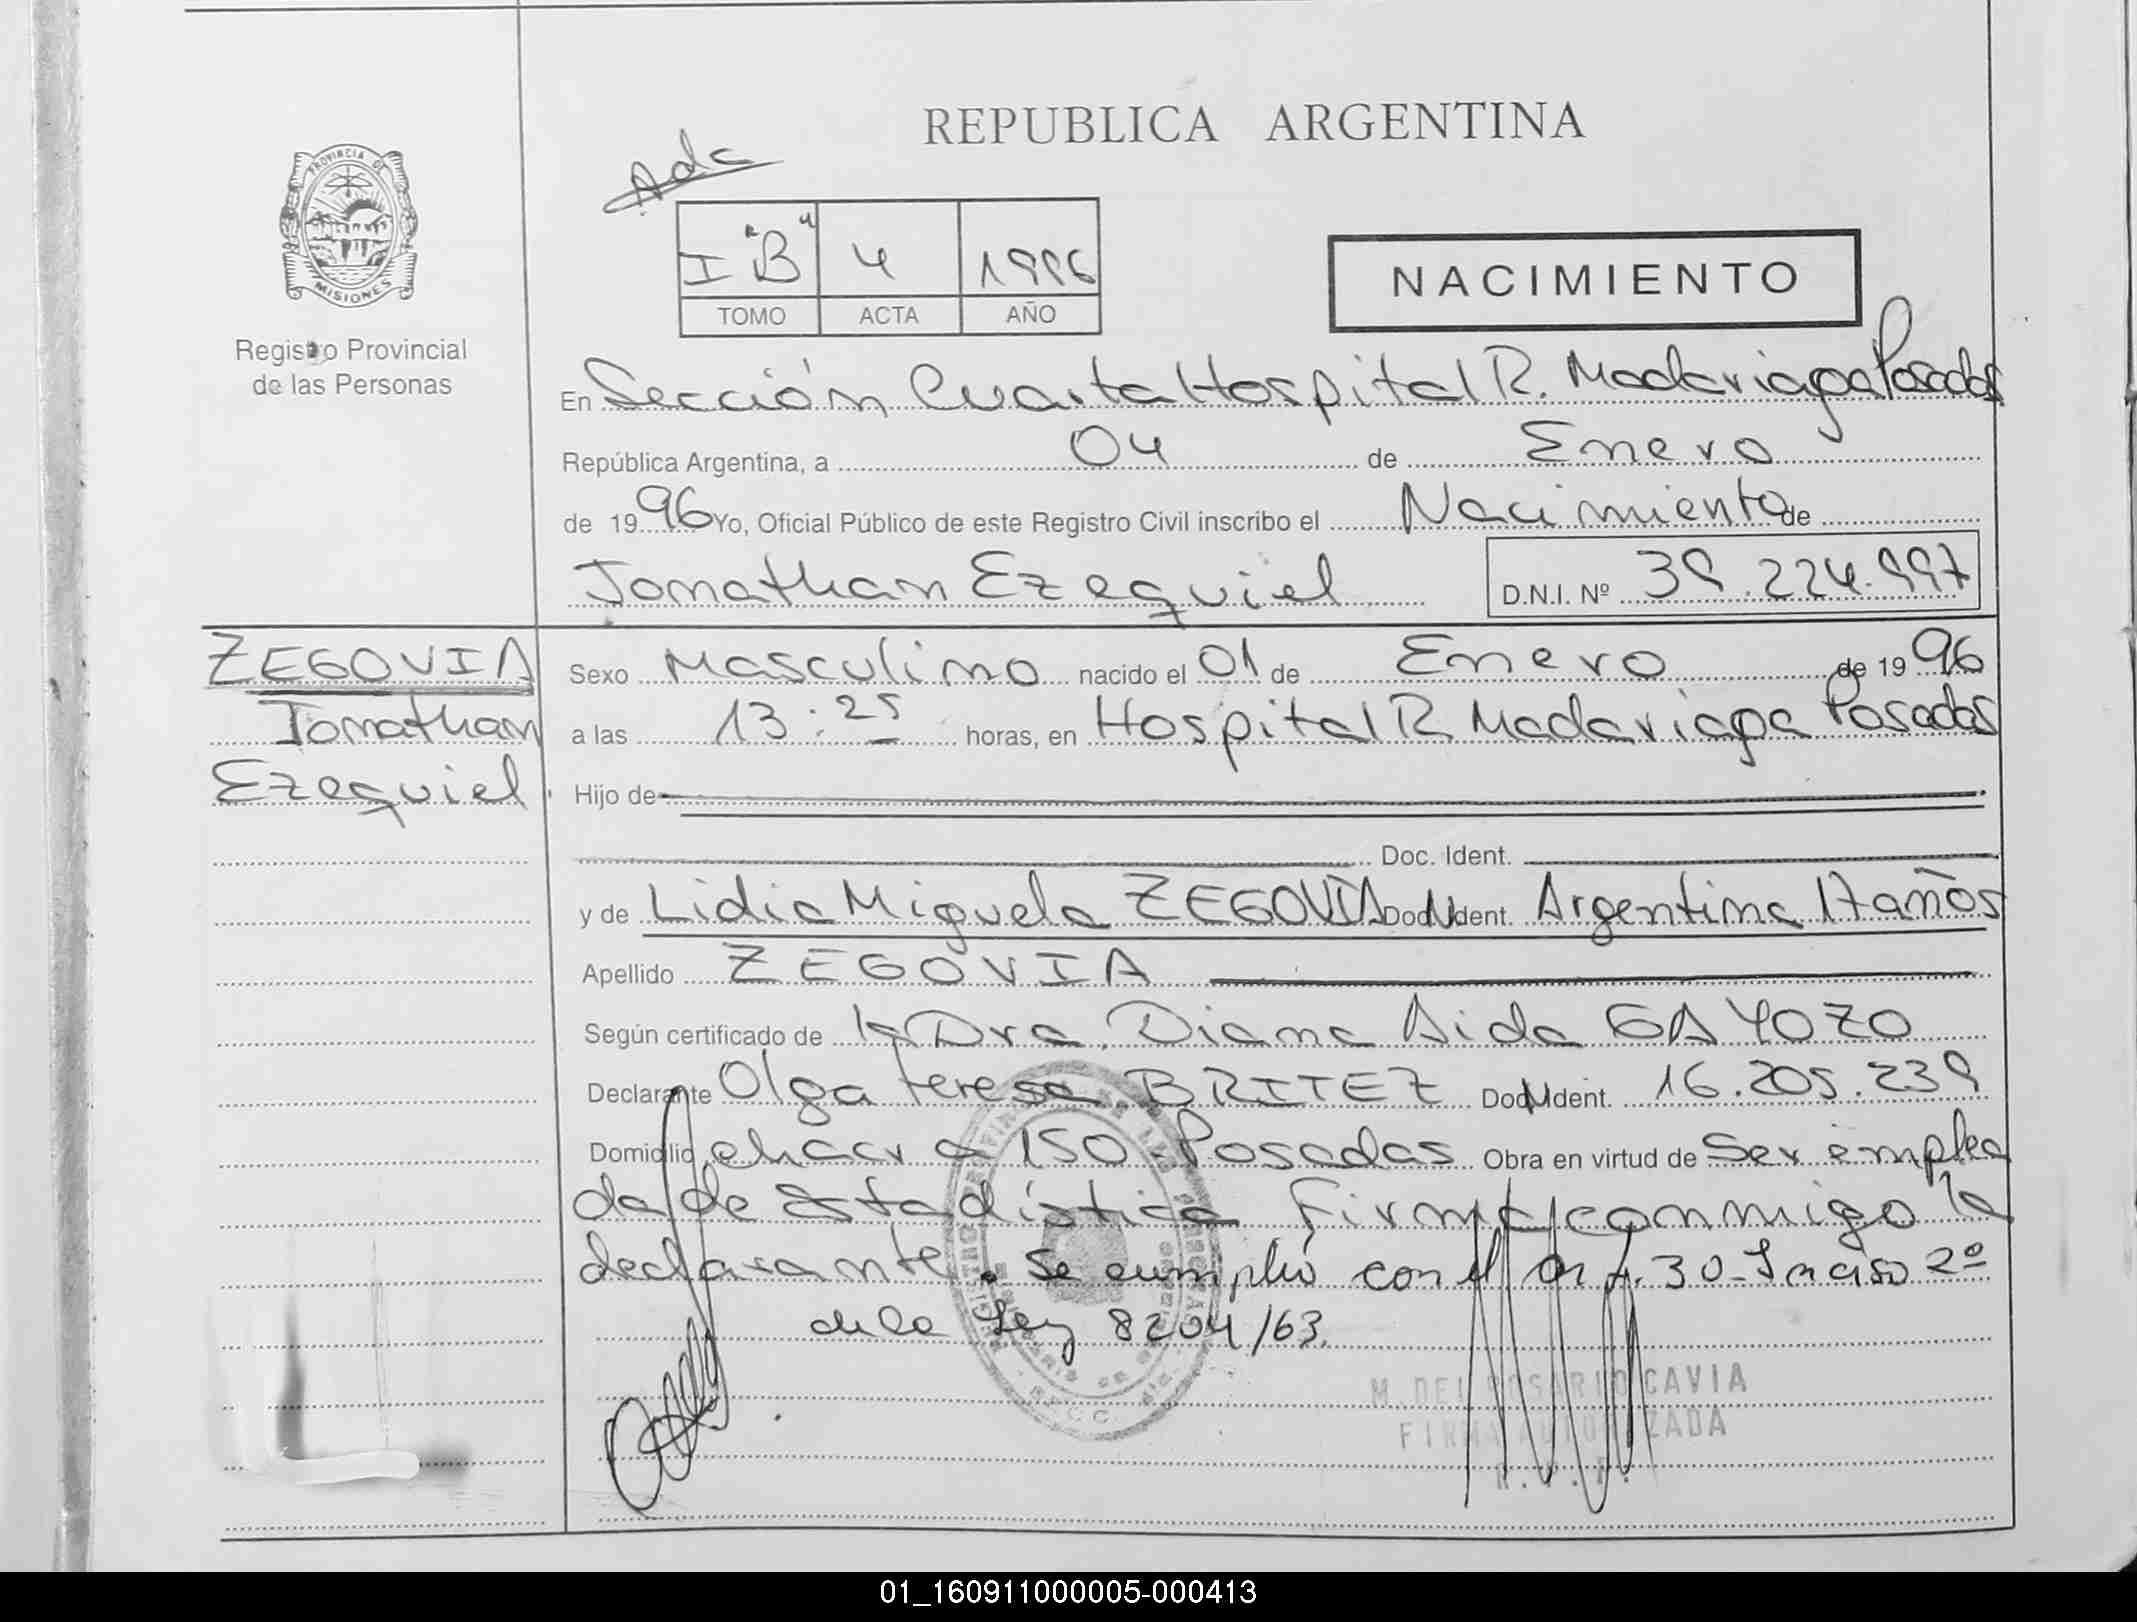 REPUBLICA ARGENTINA
PROVINCIA DE
MISIONES
Registro Provincial
de las Personas
Ada
I "B" 4 1996
TOMO ACTA AÑO
NACIMIENTO
En Sección Cuarta Hospital R. Madariaga Posadas
República Argentina, a 04 de Enero
de 1996 Yo, Oficial Público de este Registro Civil inscribo el Nacimiento de
Jonathan Ezequiel D.N.I. Nº 39.224.997
ZEGOVIA
Jonathan
Ezequiel
Sexo Masculino nacido el 01 de Enero de 1996
a las 13:25 horas, en Hospital R Madariaga Posadas
Hijo de
Doc. Ident.
y de Lidia Miguela ZEGOVIA Doc. Ident. Argentina 17 años
Apellido ZEGOVIA
Según certificado de la Dra. Diana Aida GAYOZO
Declarante Olga teresa BRITEZ Doc. Ident. 16.205.239
Domicilio chacra 150 - Posadas Obra en virtud de Ser emplea
da de Estadística Firma conmigo la
declarante. Se cumplió con el Art. 30 - Inciso 2º
de la Ley 8204/63.
M. DEL ROSARIO CAVIA
FIRMA AUTORIZADA
R.P.P.
01_160911000005-000413